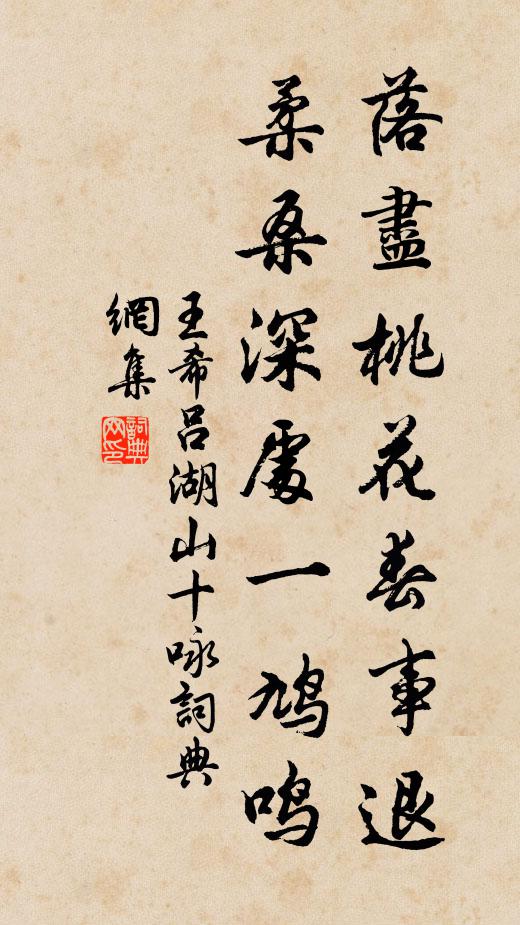 落盡桃花春事退
柔桑深處一鳩鳴
王希吕湖山十咏詞典
網集
詞典
网印